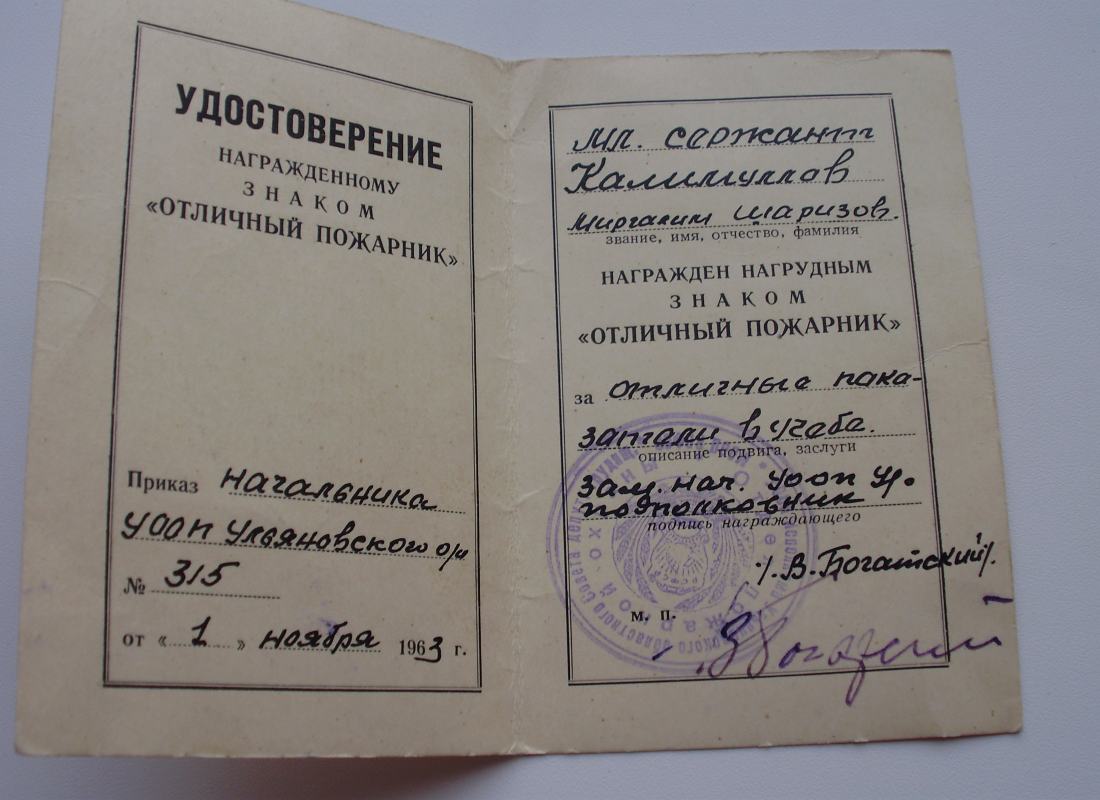 УДОСТОВЕРЕНИЕ
НАГРАЖДЕННОМУ
ЗНАКОМ
«ОТЛИЧНЫЙ ПОЖАРНИК»
Приказ начальника
УООП Ульяновского о/и
№ 315
от «1» ноября 1963 г.
мл. сержант
Калимуллов
Миргалим Шаризов.
звание, имя, отчество, фамилия
НАГРАЖДЕН НАГРУДНЫМ
ЗНАКОМ
«ОТЛИЧНЫЙ ПОЖАРНИК»
за отличные пака-
затели в учебе.
описание подвига, заслуги
Зам. нач. УООП У/о
подполковник
подпись награждающего
/В. Богатский/.
м. п.